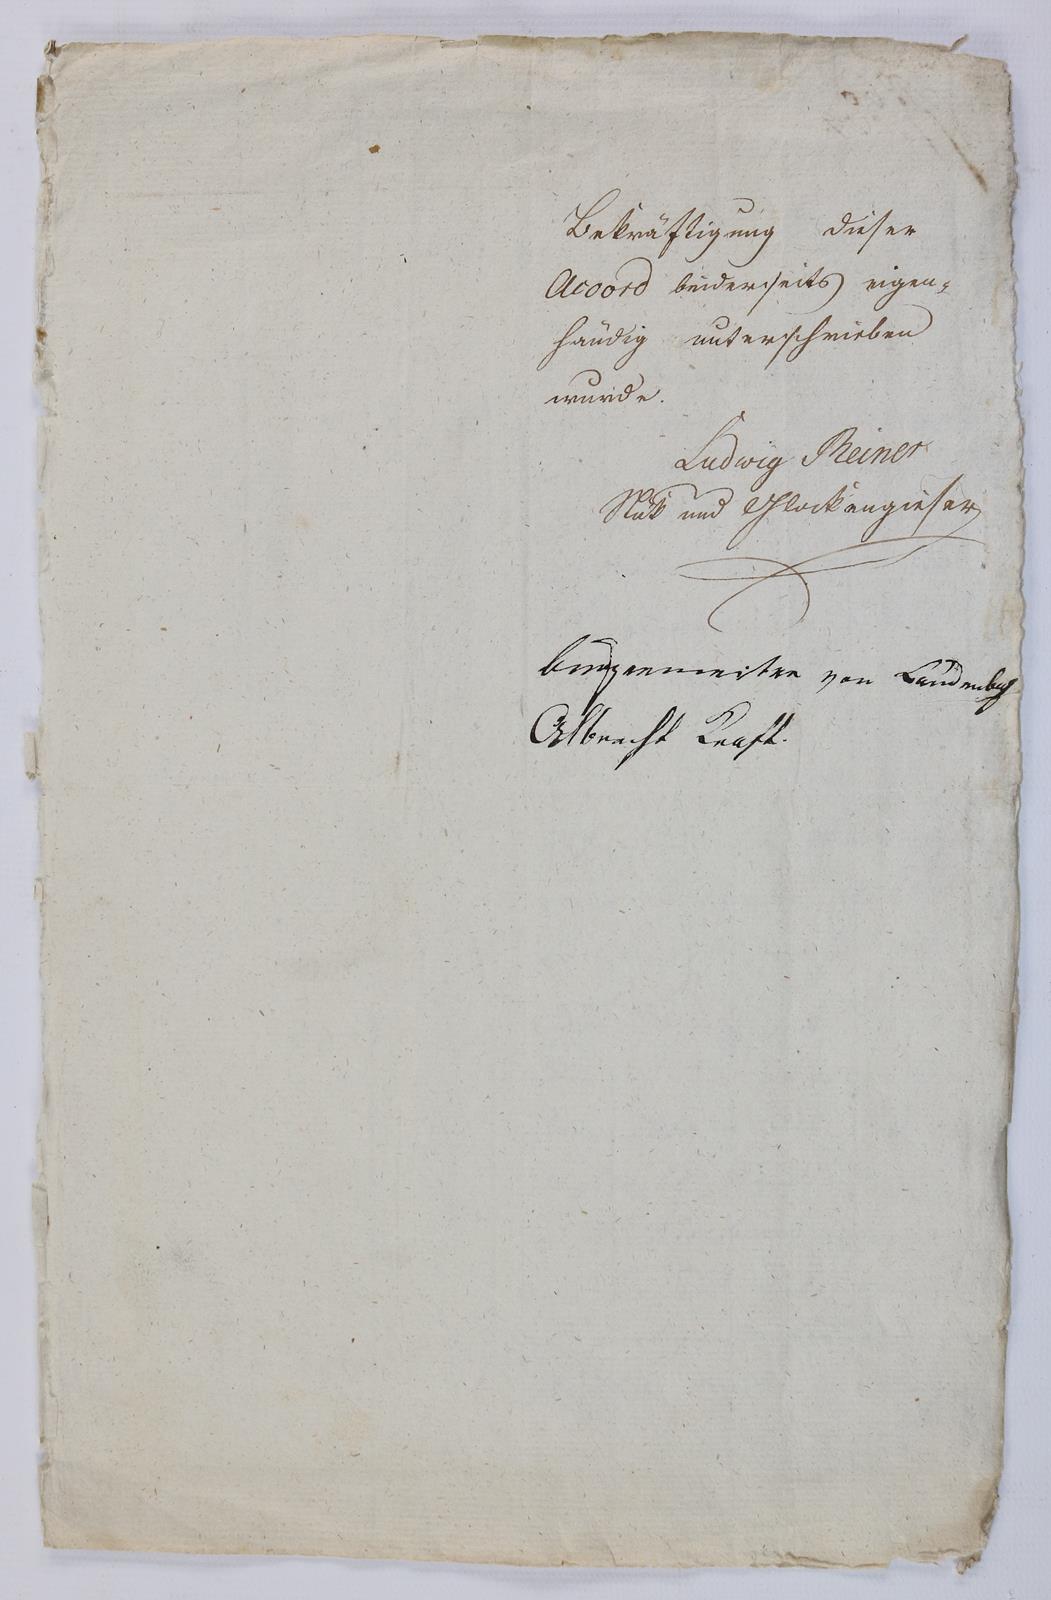 Bekräftigung dieser
Accord beiderseits eigen-
händig unterschrieben
wurde.
Ludwig Reiner
Stük und Glockengieser
burgermeister von Laudenbach
Albrecht Kraft.